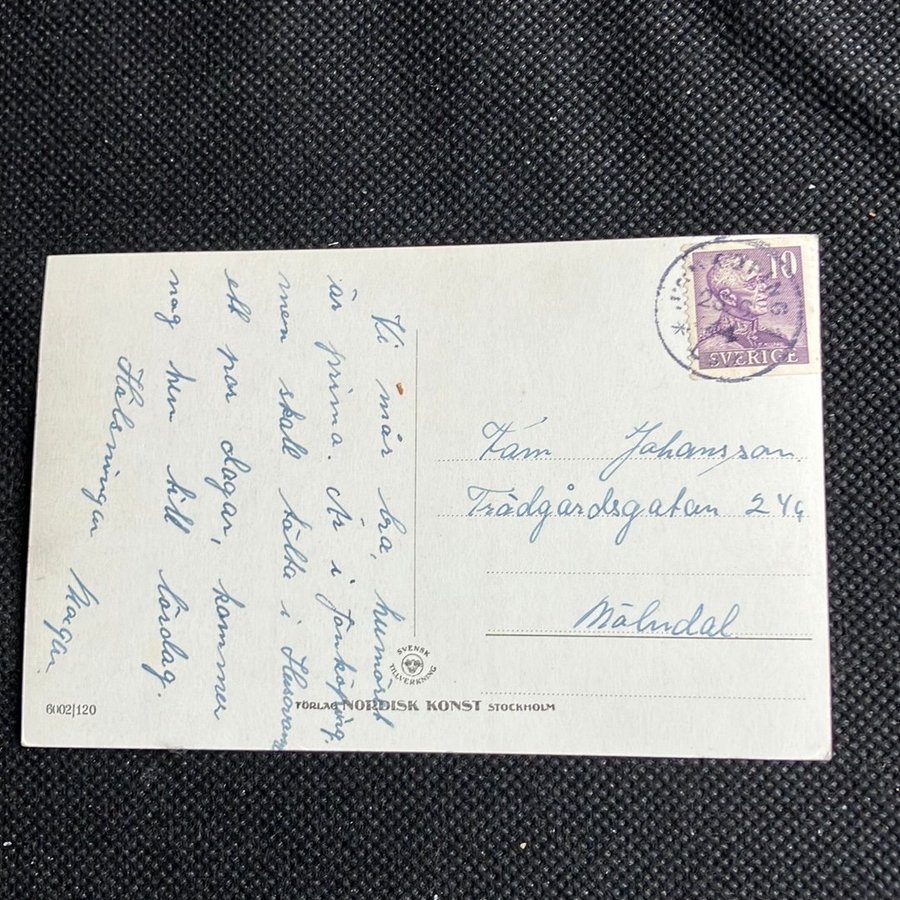 Vi mår bra, humöret
är prima. Är i Jönköping,
men skall tälta i
ett par dagar, kommer
nog hem till lördag.
Hälsningar
10
SVERIGE
Fam Johansson
Trädgårdsgatan 24
Mölndal
SVENSK
TILLVERKNING
6002/120
FÖRLAG NORDISK KONST STOCKHOLM